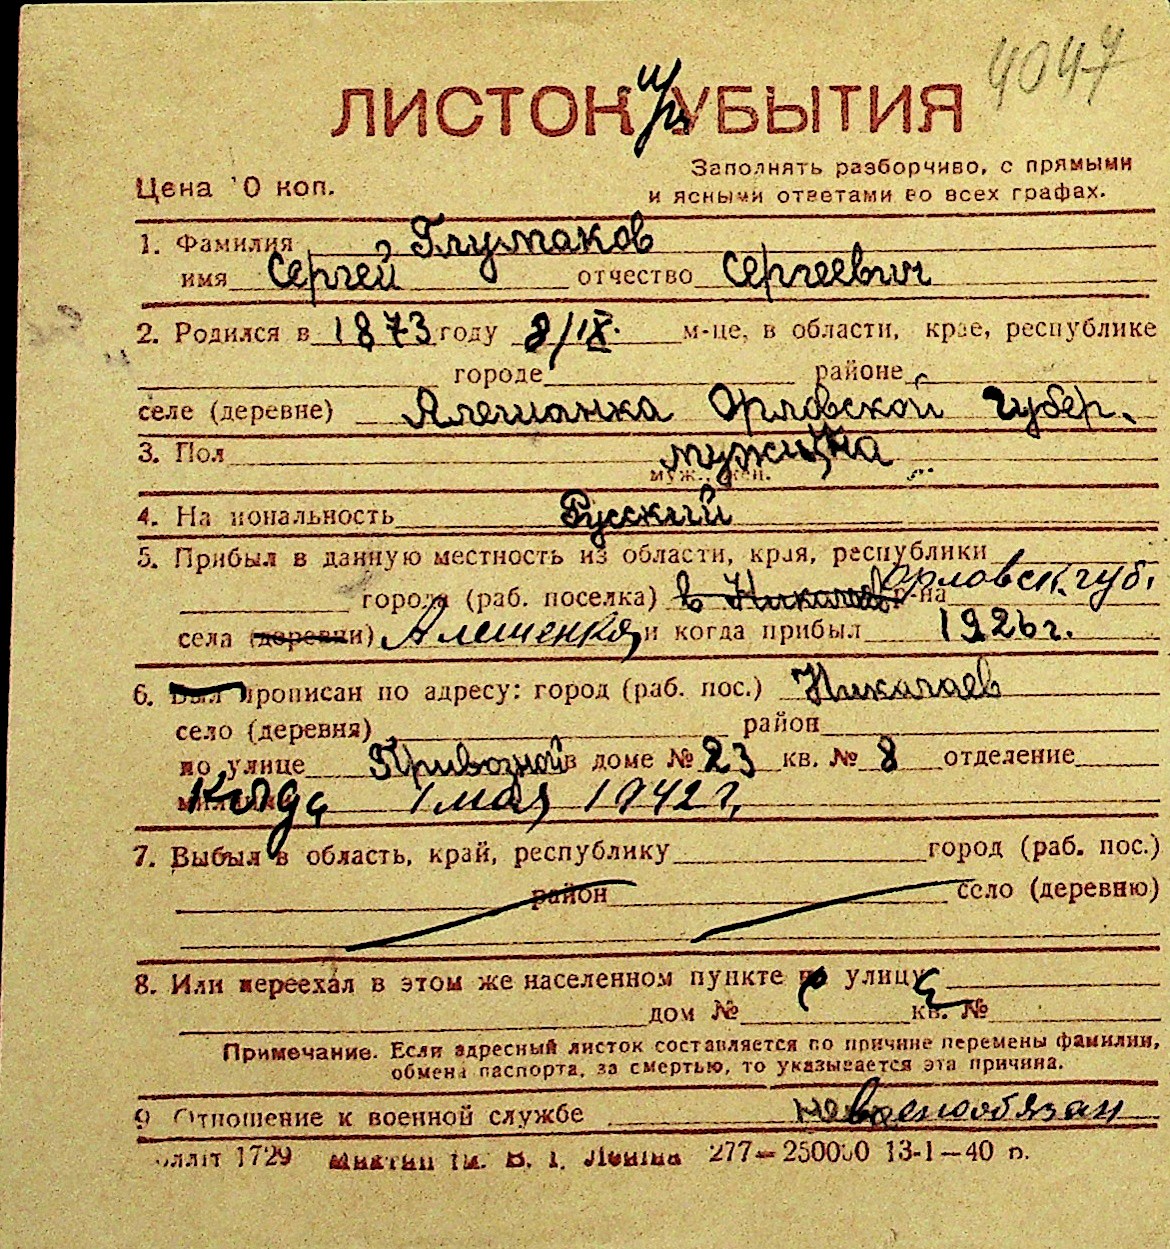 4047
ЛИСТОК УБЫТИЯ
Заполнять разборчиво, с прямыми
Цена 10 коп. и ясными ответами во всех графах.
1. Фамилия Глумаков
имя Сергей отчество Сергеевич
2. Родился в 1873 году 8/IX. м-це, в области, крае, республике
городе районе
селе (деревне) Алешанка Орловской губер.
3. Пол мужщина
муж., жен.
4. Национальность Русский
5. Прибыл в данную местность из области, края, республики
города (раб. поселка) в Николаев р-на Орловск. губ.
села (деревни) Алешенка, и когда прибыл 1926 г.
6. Был прописан по адресу: город (раб. пос.) Николаев
село (деревня) район
по улице Привозной в доме № 23 кв. № 8 отделение
милиции Когда 1 мая 1942 г.
7. Выбыл в область, край, республику город (раб. пос.)
район село (деревню)
8. Или переехал в этом же населенном пункте на улицу
дом № кв. №
Примечание. Если адресный листок составляется по причине перемены фамилии,
обмена паспорта, за смертью, то указывается эта причина.
9 Отношение к военной службе невоенообязан
1729 им. В. І. Леніна 277—250000 13-1—40 р.